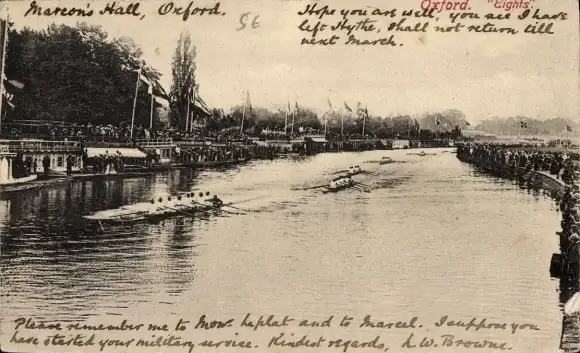 Marcon's Hall, Oxford.
5E
Oxford. "Eights".
Hope you are well, you see I have
left Hythe, Shall not return till
next March.
Please remember me to Mon. Laplat and to Marcel. I suppose you
have started your military service. Kindest regards, L. W. Browne.